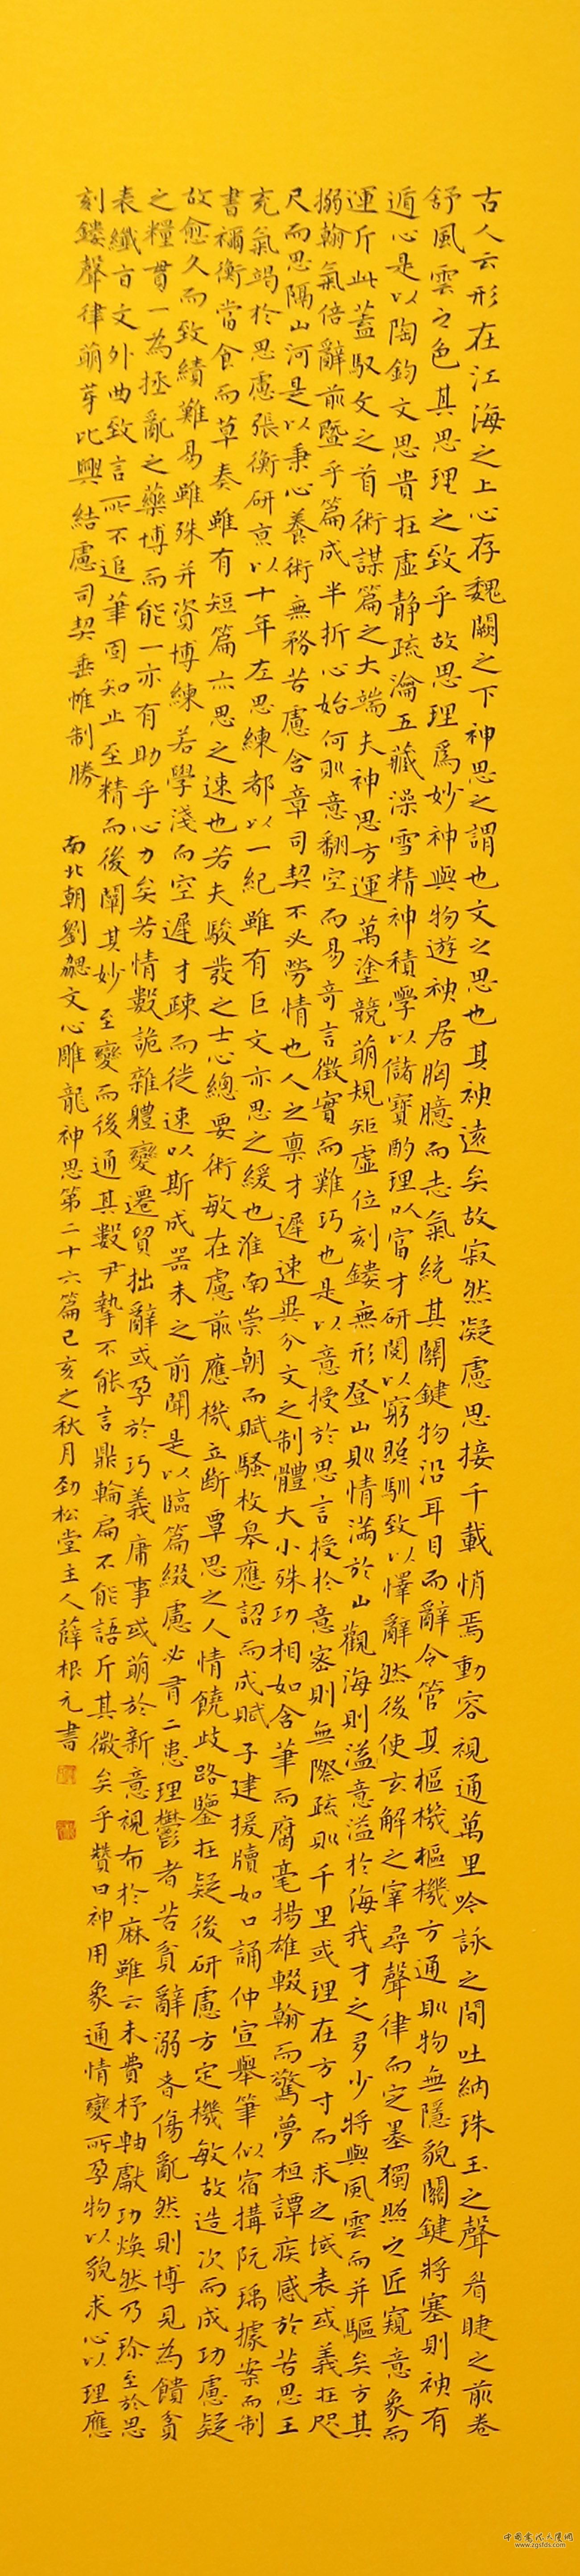 古人云形在江海之上心存魏闕之下神思之謂也文之思也其神遠矣故寂然凝慮思接千載悄焉動容視通萬里吟詠之間吐納珠玉之聲眉睫之前卷
舒風雲之色其思理之致乎故思理爲妙神與物遊神居胸臆而志氣統其關鍵物沿耳目而辭令管其樞機樞機方通則物無隱貌關鍵將塞則神有
遁心是以陶鈞文思貴在虛静疏瀹五藏澡雪精神積學以儲寶酌理以富才研閱以窮照馴致以懌辭然後使玄解之宰尋聲律而定墨獨照之匠窺意象而
運斤此蓋馭文之首術謀篇之大端夫神思方運萬塗競萌規矩虛位刻鏤無形登山則情滿於山觀海則溢意溢於海我才之多少將與風雲而并驅矣方其
搦翰氣倍辭前暨乎篇成半折心始何則意翻空而易奇言徵實而難巧也是以意授於思言授於意密則無際疏則千里或理在方寸而求之域表或義在咫
尺而思隔山河是以秉心養術無務苦慮含章司契不必勞情也人之稟才遲速異分文之制體大小殊功相如含筆而腐毫揚雄輟翰而驚夢桓譚疾感於苦思王
充氣竭於思慮張衡研京以十年左思練都以一紀雖有巨文亦思之緩也淮南崇朝而賦騷枚皋應詔而成賦子建援牘如口誦仲宣舉筆似宿搆阮瑀據案而制
書禰衡當食而草奏雖有短篇亦思之速也若夫駿發之士心總要術敏在慮前應機立斷覃思之人情饒歧路鑒在疑後研慮方定機敏故造次而成功慮疑
故愈久而致績難易雖殊并資博練若學淺而空遲才疎而徒速以斯成器未之前聞是以臨篇綴慮必有二患理鬱者苦貧辭溺者傷亂然則博見為饋貧
之糧貫一為拯亂之藥博而能一亦有助乎心力矣若情數詭雜體變遷貿拙辭或孕於巧義庸事或萌於新意視布於麻雖云未費杼軸獻功煥然乃珍至於思
表纖旨文外曲致言所不追筆固知止至精而後闡其妙至變而後通其數尹摯不能言鼎輪扁不能語斤其微矣乎贊曰神用象通情變所孕物以貌求心以理應
刻鏤聲律萌芽比興結慮司契垂帷制勝
南北朝劉勰文心雕龍神思第二十六篇己亥之秋月勁松堂主人薛根元書
www.zgsfds.com